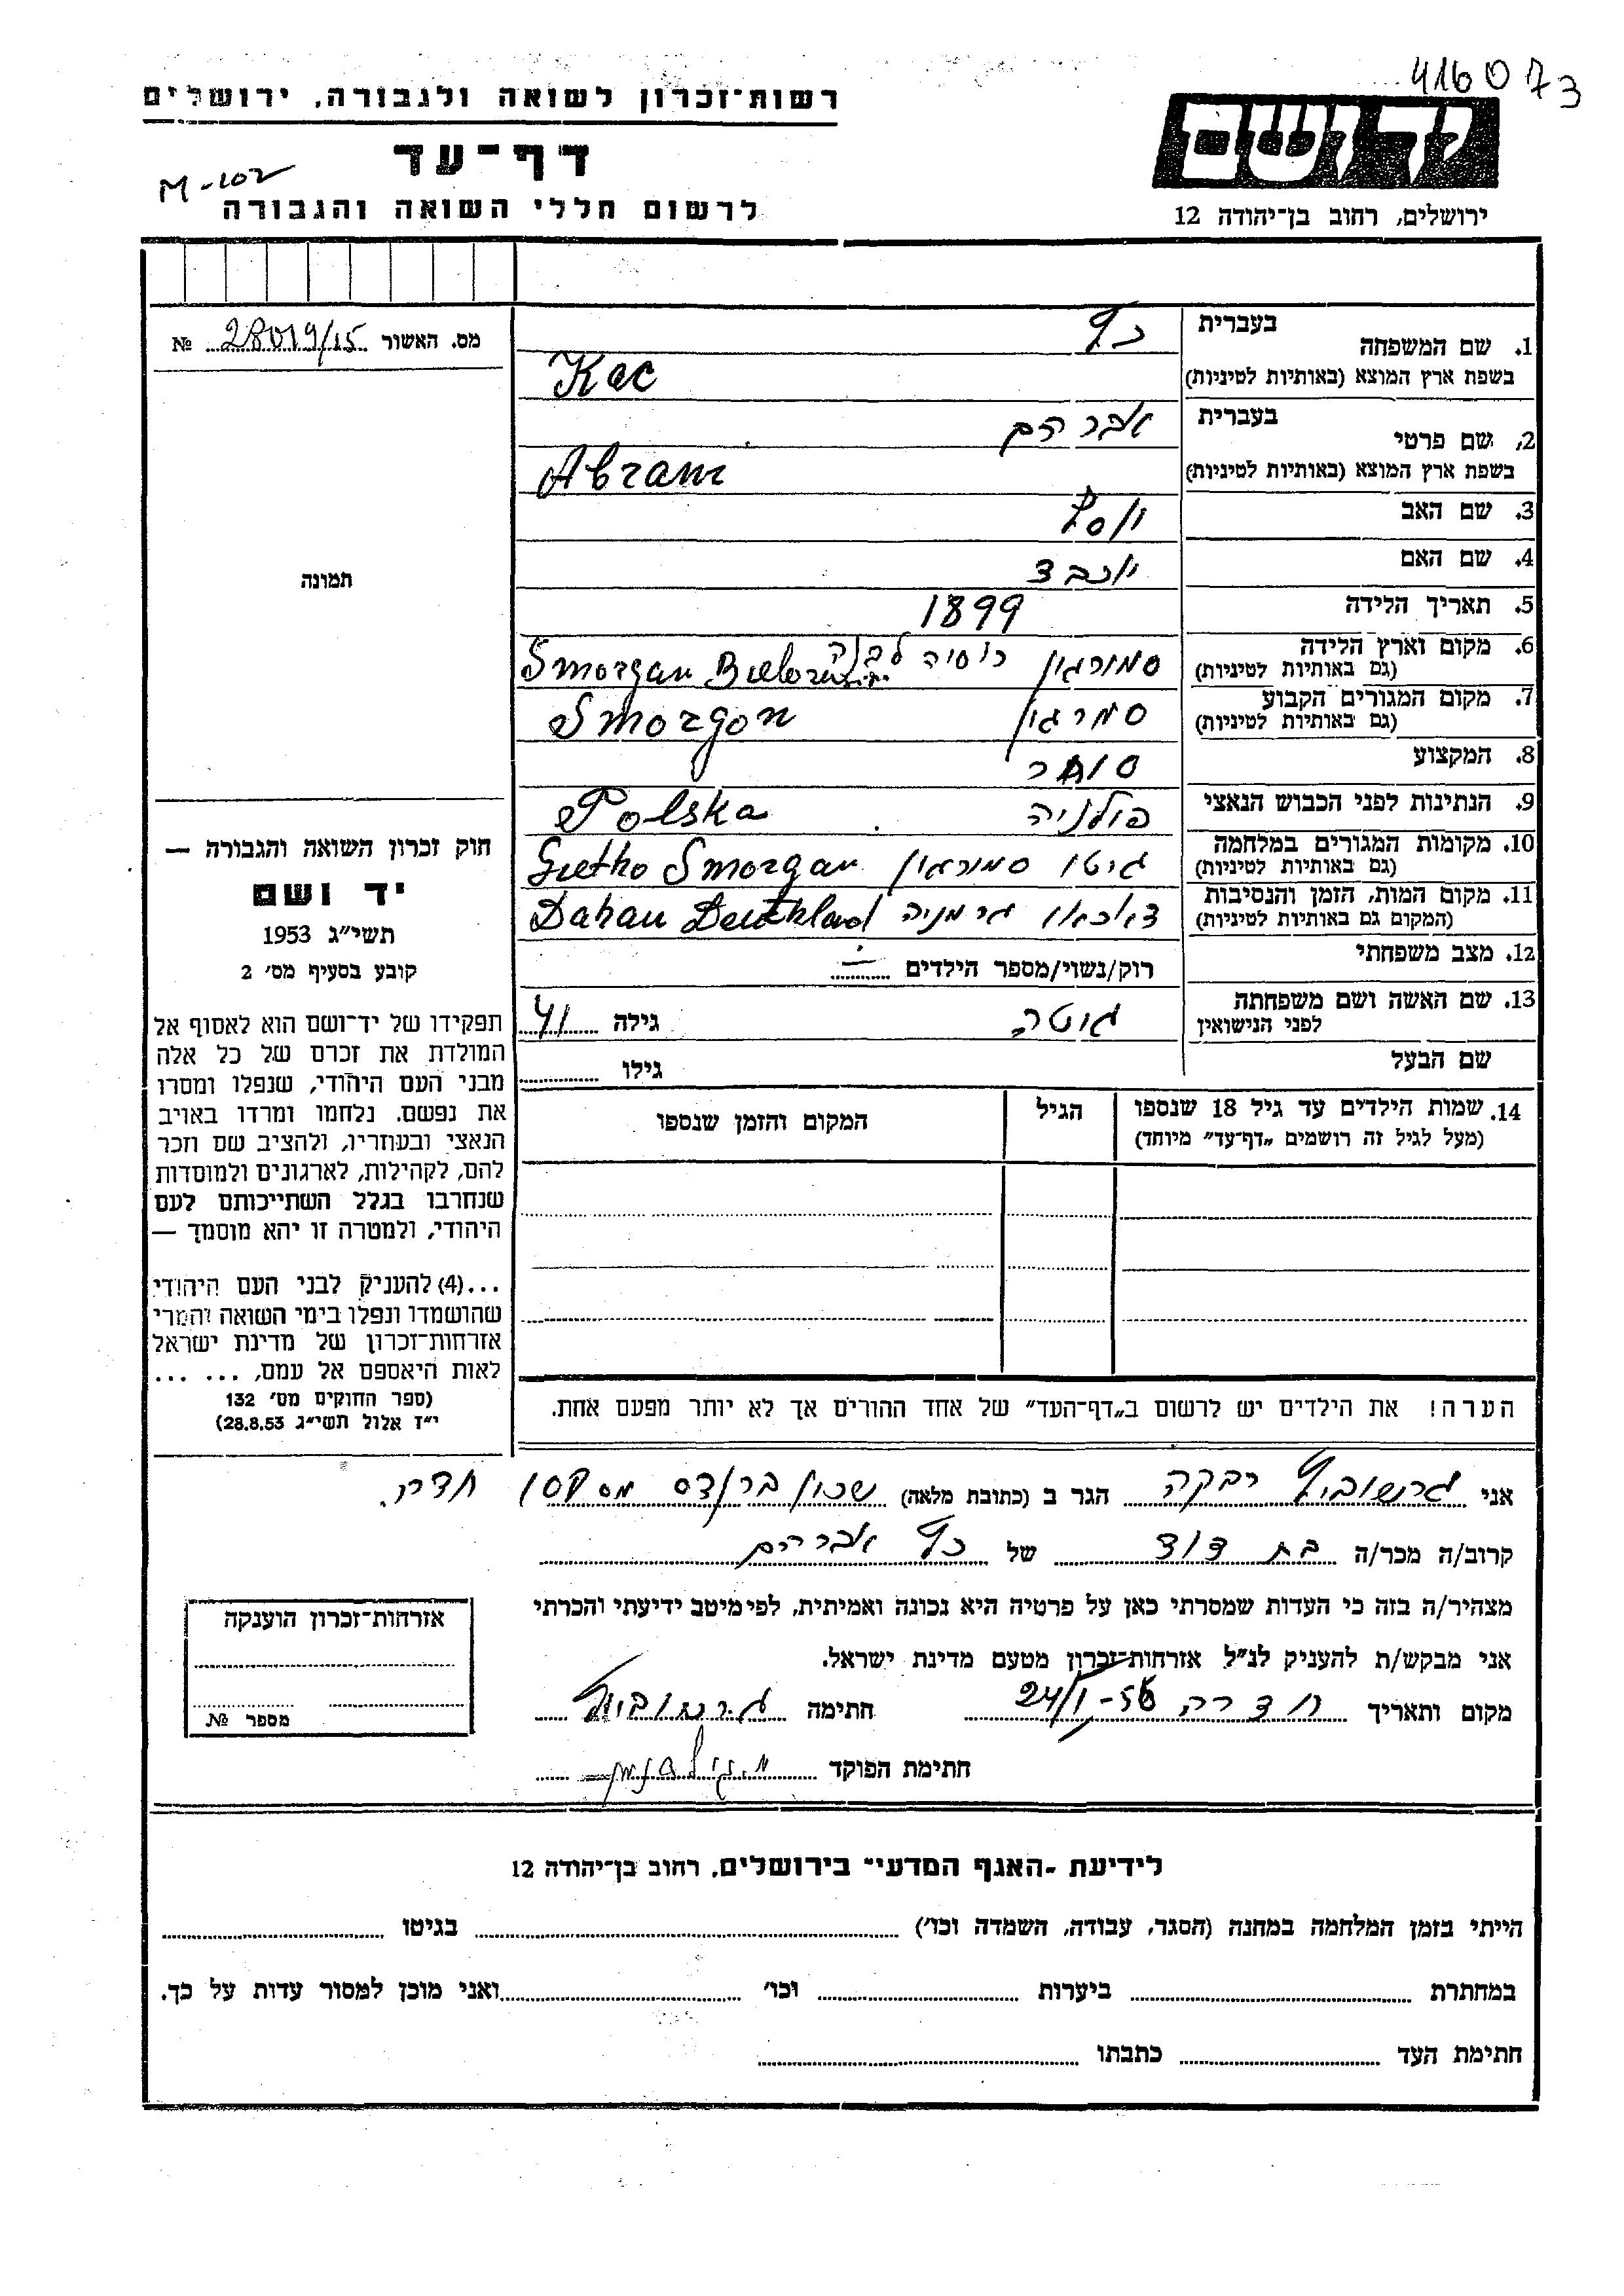 416073
רשות־זכרון לשואה ולגבורה, ירושלים
ידושם
דף־עד
M-102
לרשום חללי השואה והגבורה
ירושלים, רחוב בן־יהודה 12
מס. האשור 28019/15 №
תמונה
1. שם המשפחה בעברית כץ
בשפת ארץ המוצא (באותיות לטיניות) Kac
2. שם פרטי בעברית אברהם
בשפת ארץ המוצא (באותיות לטיניות) Abram
3. שם האב יוסף
4. שם האם יוכבד
5. תאריך הלידה 1899
6. מקום וארץ הלידה (גם באותיות לטיניות) סמורגון רוסיה לבנה Smorgan
7. מקום המגורים הקבוע (גם באותיות לטיניות) סמרגון Smorgon
8. המקצוע סוחר
9. הנתינות לפני הכבוש הנאצי פולניה Polska
10. מקומות המגורים במלחמה (גם באותיות לטיניות) גיטו סמורגון Getho Smorgan
11. מקום המות, הזמן והנסיבות (המקום גם באותיות לטיניות) דאכאו גרמניה Dahau Deutkland
12. מצב משפחתי רוק/נשוי/מספר הילדים
13. שם האשה ושם משפחתה לפני הנישואין גוטה גילה 41
שם הבעל גילו
14. שמות הילדים עד גיל 18 שנספו (מעל לגיל זה רושמים „דף־עד” מיוחד) הגיל המקום והזמן שנספו
חוק זכרון השואה והגבורה —
יד ושם
תשי״ג 1953
קובע בסעיף מס׳ 2
תפקידו של יד־ושם הוא לאסוף אל
המולדת את זכרם של כל אלה
מבני העם היהודי, שנפלו ומסרו
את נפשם, נלחמו ומרדו באויב
הנאצי ובעוזריו, ולהציב שם וזכר
להם, לקהילות, לארגונים ולמוסדות
שנחרבו בגלל השתייכותם לעם
היהודי, ולמטרה זו יהא מוסמך —
...(4) להעניק לבני העם היהודי
שהושמדו ונפלו בימי השואה והמרי
אזרחות־זכרון של מדינת ישראל
לאות היאספם אל עמם, ... ...
(ספר החוקים מס׳ 132
י״ז אלול תשי״ג 28.8.53)
הערה! את הילדים יש לרשום ב„דף־העד” של אחד ההורים אך לא יותר מפעם אחת.
אני גרשוביץ רבקה הגר ב (כתובת מלאה) שכון ברנדס מס חדרה
קרוב/ה מכר/ה בת דוד של כץ אברהם
מצהיר/ה בזה כי העדות שמסרתי כאן על פרטיה היא נכונה ואמיתית, לפי מיטב ידיעתי והכרתי
אני מבקש/ת להעניק לנ״ל אזרחות־זכרון מטעם מדינת ישראל.
מקום ותאריך חדרה 24/1-56 חתימה גרשוביץ
חתימת הפוקד
אזרחות־זכרון הוענקה
מספר №
לידיעת -האגף המדעי״ בירושלים, רחוב בן־יהודה 12
הייתי בזמן המלחמה במחנה (הסגר, עבודה, השמדה וכו׳) בגיטו
במחתרת ביערות וכו׳ ואני מוכן למסור עדות על כך.
חתימת העד כתבתו